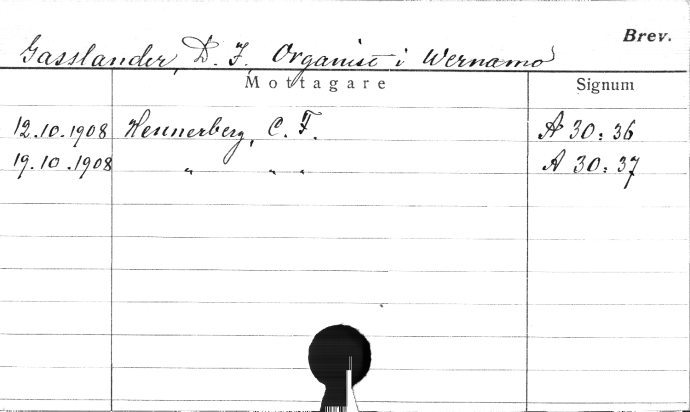 Brev.
Gasslander, D. F. Organist i Wernamo
Mottagare Signum
12.10.1908 Hennerberg, C. F. A 30:36
19.10.1908 " " " A 30:37